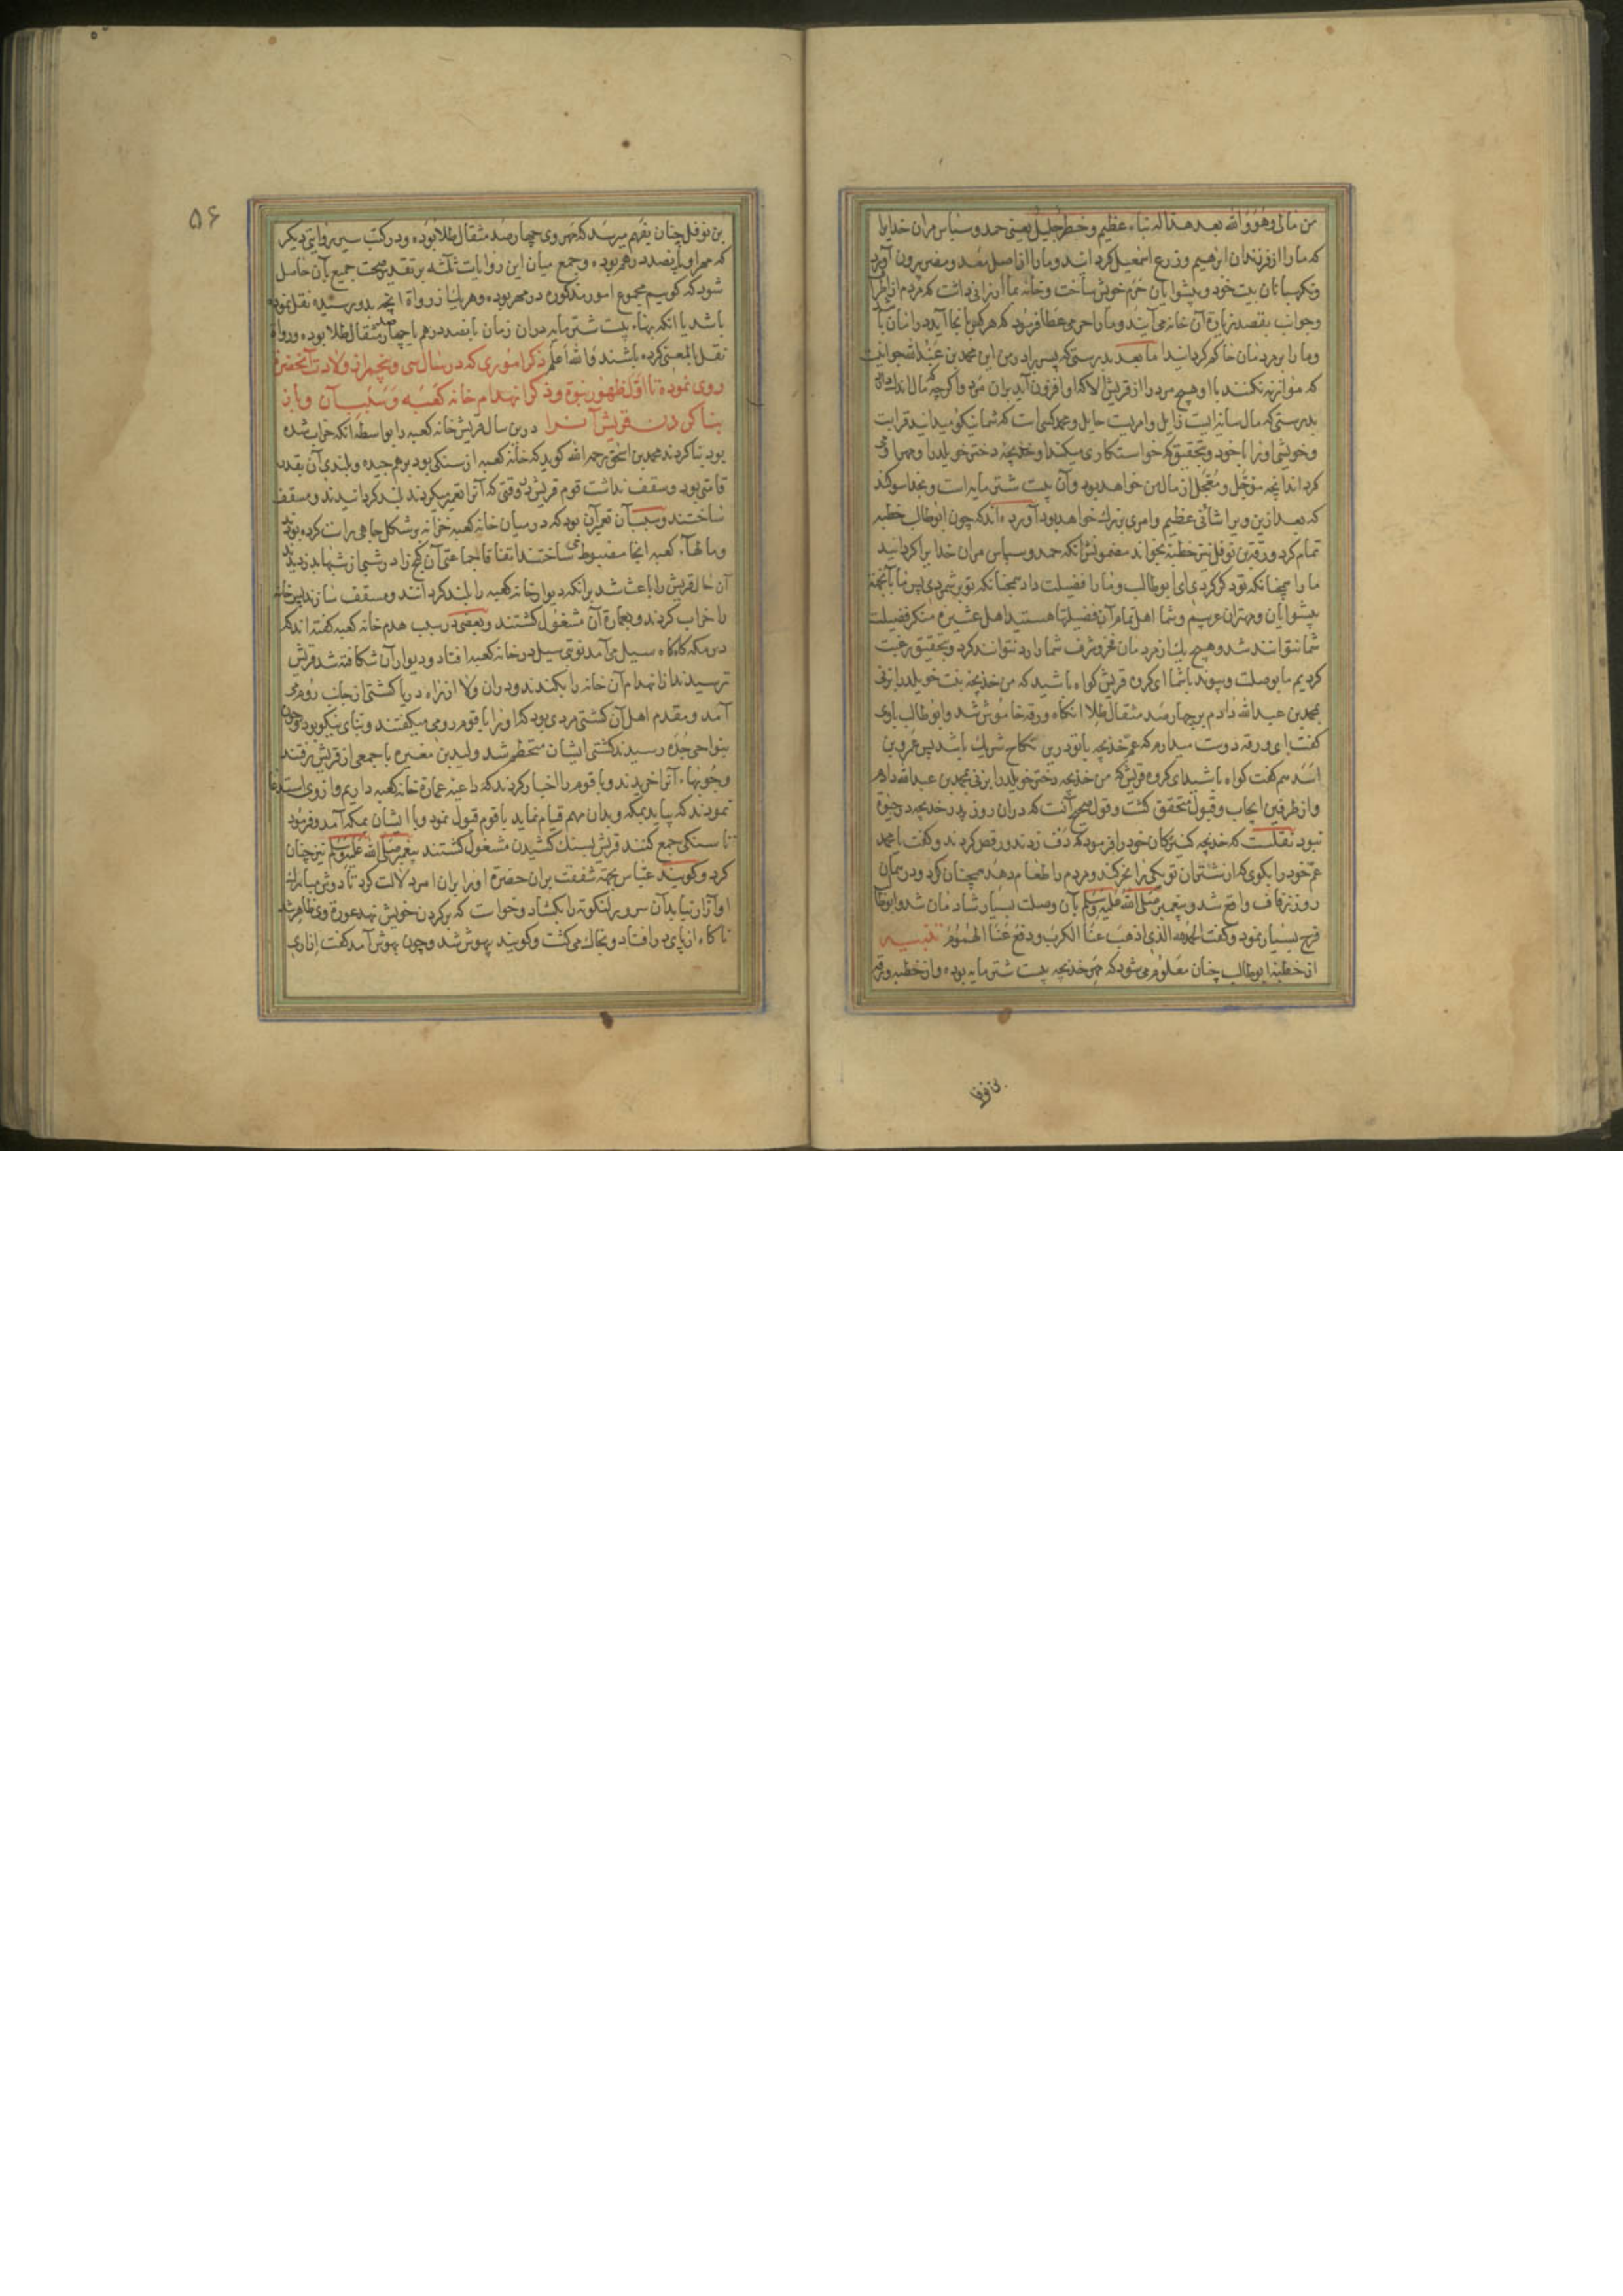 من مالی وهو والله بعد هذا له نباء عظیم وخطر جلیل یعنی حمد و سپاس مران خدایرا
که ما را از فرزندان ابرهیم و زرع اسمعیل کردانید و ما را از اصل معد و مضر بیرون آورد
و نکهبانان بیت خود و پیشوایان حرم خویش ساخت و خانه بما ارزانی داشت که مردم از اطراف
و جوانب بقصد زیارة آن خانه می آیند و ما را حرمی عطا فرمود که هر کس بانجا آید در امان باشد
و ما را بر مردمان حاکم کردانید اما بعد بدرستی که پسر برادر من این محمد بن عبدالله جوانیست
که موازنه نکنند با او هیچ مرد را از قریش الا که او افزون آید بران مرد و اکرچه که مال اندک دارد
بدرستی که مال سایه ایست زایل و امریست حایل و محمد کسی است که شما نیکو میدانید قرابت
و خویشی او را با خود و بتحقیق که خواستکاری میکند او خدیجه دختر خویلد را و مهر او می
کرداند انچه موجل و معجل از مال من خواهد بود و آن بیست شتر مایه است و بخدا سوکند
که بعد ازین ویرا شانی عظیم و امری بزرک خواهد بود آورده اند که چون ابوطالب خطبه
تمام کرد ورقة بن نوفل نیز خطبه بخواند مضمونش انکه حمد و سپاس مران خدایرا کردانید
ما را همچنانکه تو ذکر کردی ای ابوطالب و ما را فضیلت داد همچنانکه تو بر شمردی پس ما باجمعنا
پیشوایان و مهتران عربیم و شما اهل تمام آن فضیلتها هستید اهل عشیره منکر فضیلت
شما نتوانند شد و هیچ یک از مردمان فخر و شرف شما را رد نتوانند کرد و بتحقیق رغبت
کردیم ما بوصلت و پیوند با شما ای کروه قریش کواه باشید که من خدیجه بنت خویلد را بزنی
بمحمد بن عبدالله دادم بر چهارصد مثقال طلا انکاه ورقه خاموش شد و ابوطالب با وی
کفت ای ورقه دوست میدارم که عم خدیجه با تو درین نکاح شریک باشد پس عمرو بن
اسد هم کفت کواه باشید ای کروه قریش که من خدیجه دختر خویلد را بزنی بمحمد بن عبدالله دادم
و از طرفین ایجاب و قبول متحقق کشت و قول صحیح آنست که دران روز پدر خدیجه در حیوة
نبود نقلست که خدیجه کنیزکان خود را فرمود که دف زدند و رقص کردند و کفت یا محمد
عم خود را بکوی که از شتران تو یکی را نحر کند و مردم را طعام دهد همچنان کرد و در همان
روز زفاف واقع شد و پیغمبر صلی الله علیه وسلم بآن وصلت بسیار شادمان شد و ابوطالب
فرح بسیار نمود و کفت الحمدلله الذی اذهب عنا الکرب و دفع عنا الهموم تنبیه
از خطبه ابوطالب چنان معلوم می شود که مهر خدیجه بیست شتر مایه بوده و از خطبه ورقه
بن نوفل
۵۶
بن نوفل چنان بفهم میرسد که مهر وی چهارصد مثقال طلا بوده و در کتب سیر بروایتی دیکر
که مهر او پانصد درهم بوده و جمع میان این روایات ثلثه بر تقدیر صحت جمیع بآن حاصل
شود که کوییم مجموع امور مذکوره در مهر بوده و هر یک از رواة انچه بدو رسیده نقل نموده
باشد یا انکه بهاء بیست شتر مایه دران زمان پانصد درهم یا چهارصد مثقال طلا بوده و رواة
نقل بالمعنی کرده باشند والله اعلم ذکر اموری که در سال سی و پنجم از ولادت آنحضرت
روی نموده تا اول ظهور نبوة و ذکر انهدام خانه کعبه و سبب آن و باز
بنا کردن قریش آنرا درین سال قریش خانه کعبه را بواسطه انکه خراب شده
بود بنا کردند محمد بن اسحق رحمه الله کوید که خانه کعبه از سنکی بود برهم چیده و بلندی آن بقدر
قامتی بود و سقف نداشت قوم قریش در وقتی که آنرا تعمیر میکردند بلند کردانیدند و مسقف
ساختند و سبب آن تعمیر آن بود که در میان خانه کعبه خزانه بر شکل چاهی راست کرده بودند
و مالهاء کعبه انجا مضبوط می ساختند اتفاقا جماعتی آن کنج را در شبی از شبها بدزدیدند
آن حال قریش را باعث شد برانکه دیوار خانه کعبه را بلند کردانند و مسقف سازند پس خانه
را خراب کردند و بعمارة آن مشغول کشتند و بعضی در سبب هدم خانه کعبه کفته اند که
در مکه کاه کاه سیل می آمد نوبتی سیل در خانه کعبه افتاد و دیوار آن شکافته شد قریش
ترسیدند از انهدام آن خانه را بکندند و دران ولا از راه دریا کشتی از جانب روم می
آمد و مقدم اهل آن کشتی مردی بود که او را باقوم رومی میکفتند و بنای نیکو بود و چون
بنواحی جده رسیدند کشتی ایشان متحطم شد ولید بن مغیره با جمعی از قریش برفتند
و چوبهاء آنرا خریدند و باقوم را اخبار کردند که داعیه عمارة خانه کعبه داریم و از وی استدعا
نمودند که بیاید بمکه و بدان مهم قیام نماید باقوم قبول نمود و با ایشان بمکه آمد و فرمود
تا سنکی جمع کنند قریش بسنک کشیدن مشغول کشتند پیغمبر صلی الله علیه وسلم نیز چنان
کرد و کویند عباس بجهة شفقت بران حضرة او را بران امر دلالت کرد تا دوش مبارک
او آزار نیابد آن سرور لنکوته را بکشاد و خواست که بر کردن خویش نهد عورة وی ظاهر شد
ناکاه از پای در افتاد و بخاک می کشت و کویند بیهوش شد و چون بهوش آمد کفت ازاری